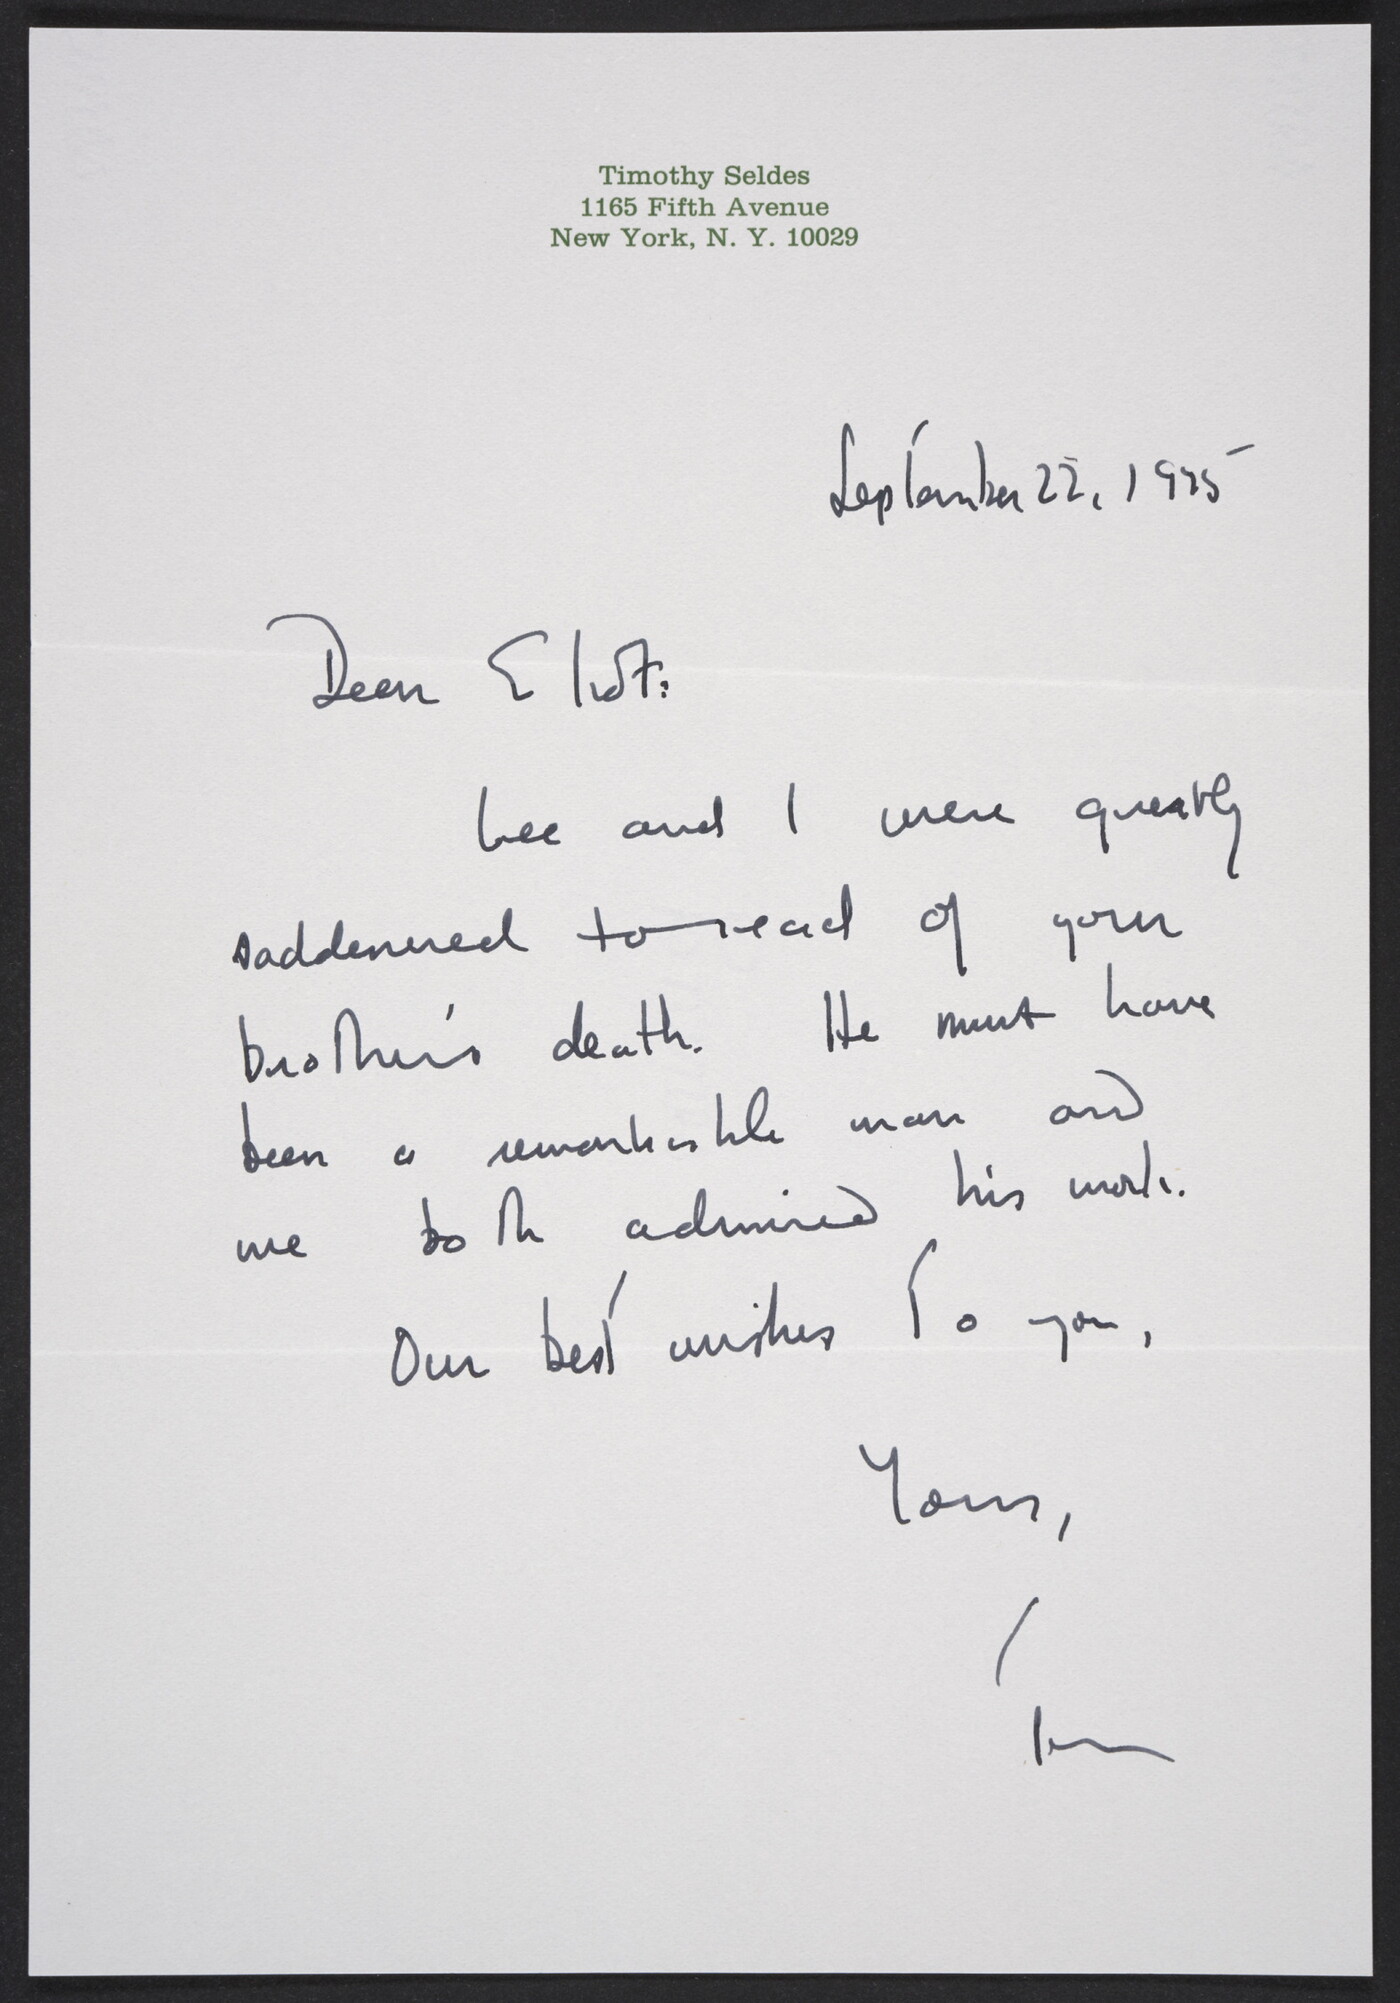 Timothy Seldes
1165 Fifth Avenue
New York, N. Y. 10029
September 22, 1975
Dear Eliot:
Lee and I were greatly
saddened to read of your
brother's death. He must have
been a remarkable man and
we both admired his work.
Our best wishes to you,
Yours,
Tim